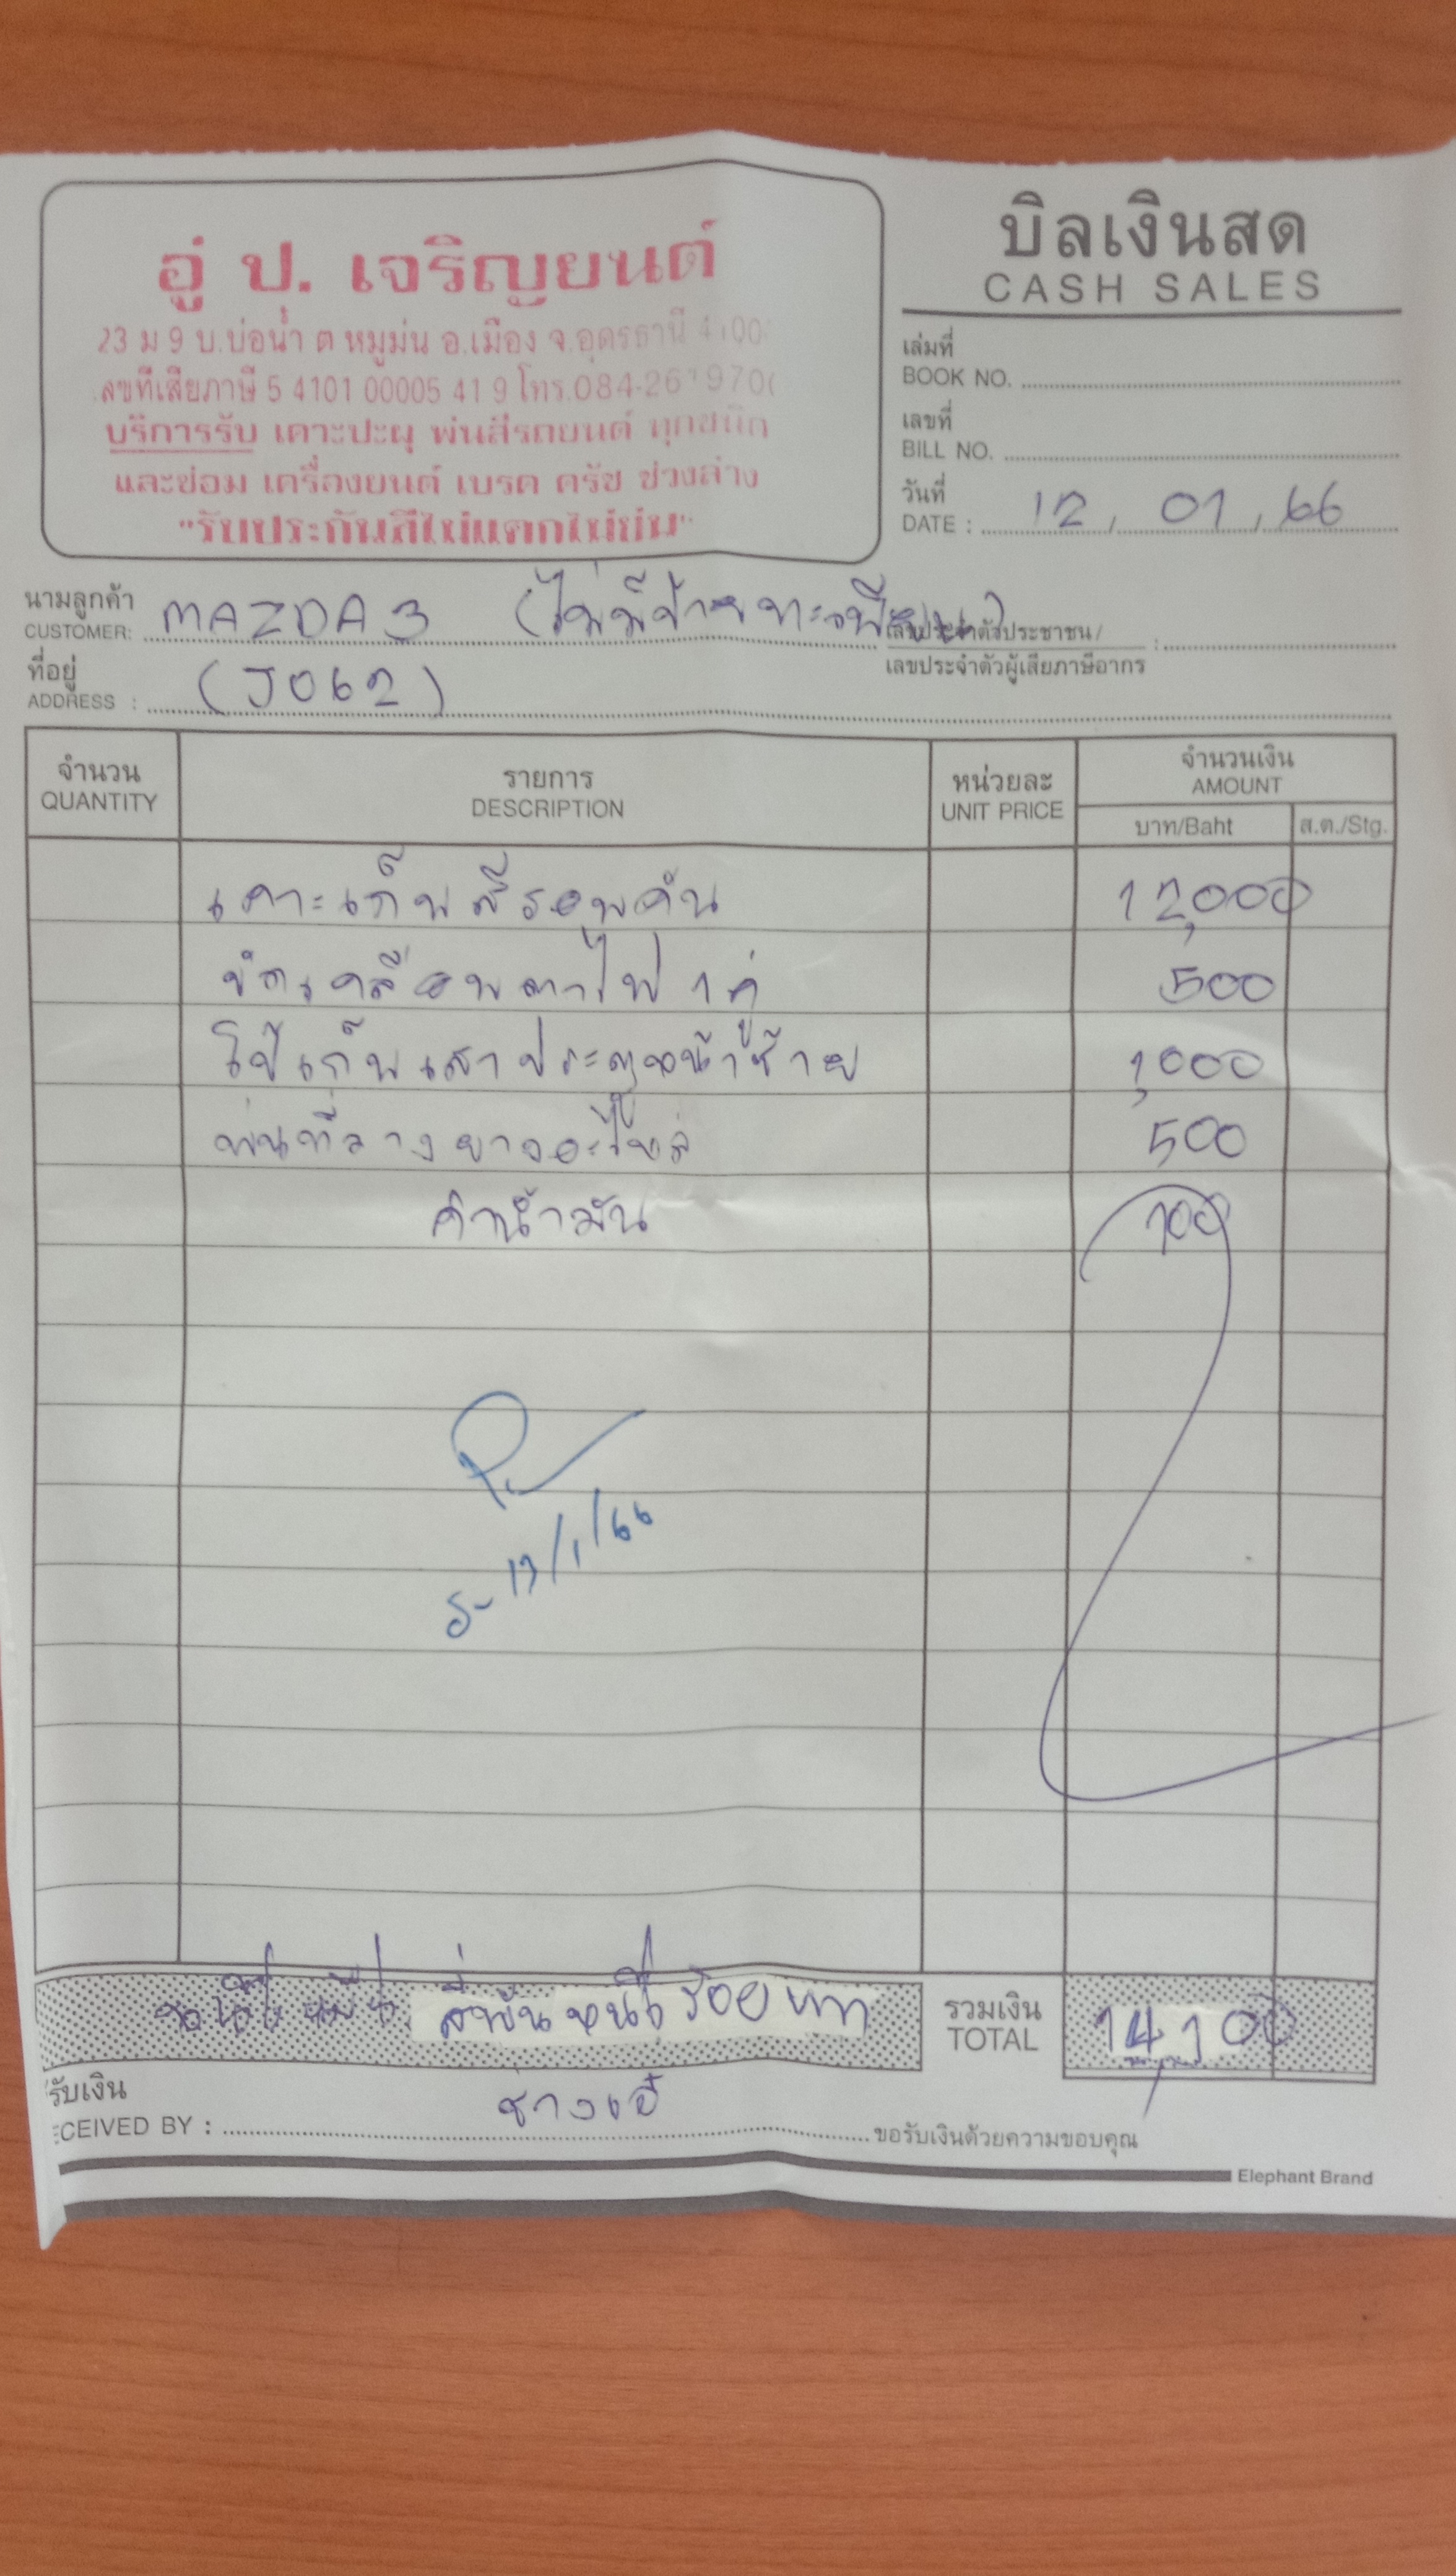 อู่ ป. เจริญยนต์
23 ม 9 บ.บ่อน้ำ ต หมูม่น อ.เมือง จ.อุดรธานี
ลขที่เสียภาษี 5 4101 00005 41 9 โทร.084-26
บริการรับ เคาะปะผุ พ่นสีรถยนต์ ทุกชนิด
และซ่อม เครื่องยนต์ เบรค ครัช ช่วงล่าง
"รับประกันสีไม่แตกไม่บ่ม"
บิลเงินสด
CASH SALES
เล่มที่
BOOK NO.
เลขที่
BILL NO.
วันที่
DATE : 12, 01, 66
นามลูกค้า
CUSTOMER: MAZDA 3 (ไม่มีป้ายทะเบียน)
เลขประจำตัวประชาชน/
เลขประจำตัวผู้เสียภาษีอากร :
ที่อยู่
ADDRESS : (J062)
จำนวน
QUANTITY
รายการ
DESCRIPTION
หน่วยละ
UNIT PRICE
จำนวนเงิน
AMOUNT
บาท/Baht ส.ต./Stg.
เคาะเก็บสีรอบคัน 12,000
ขัดเคลือบตาไฟ 1 คู่ 500
โป้เก็บเสาประตูหน้าซ้าย 1,000
พ่นที่วางยางอะไหล่ 500
ค่าน้ำมัน 100
13/1/66
สี่พันหนึ่งร้อยบาท
รวมเงิน
TOTAL 14,100
รับเงิน
CEIVED BY : ช่างเอ๋
ขอรับเงินด้วยความขอบคุณ
Elephant Brand